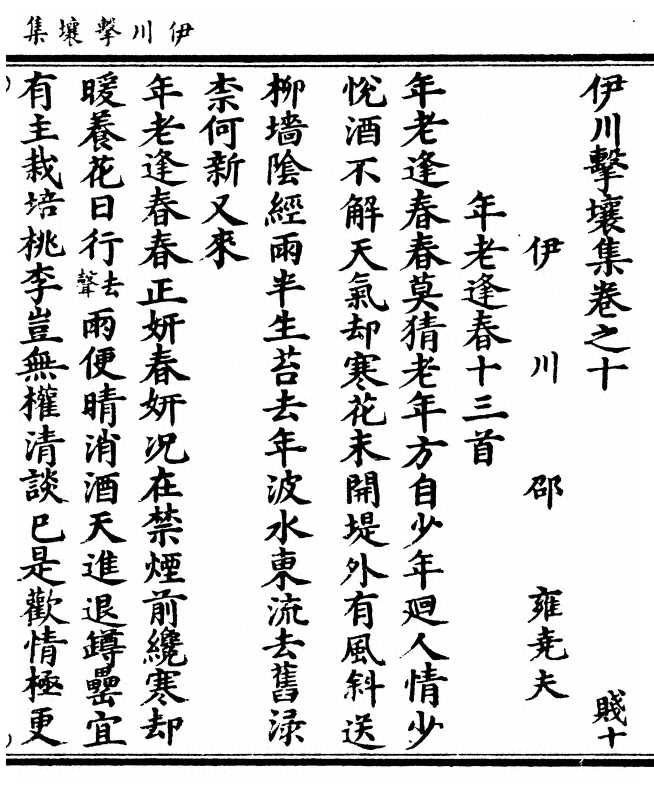 伊川擊壤集
伊川擊壤集卷之十 賤十
伊川 邵 雍尭夫
年老逢春十三首
年老逢春春莫猜老年方自少年廻人情少
恱酒不解天氣却寒花未開堤外有風斜送
柳墻陰經雨半生苔去年波水東流去舊渌
柰何新又來
年老逢春春正妍春妍况在禁煙前纔寒却
暖養花日行去聲雨便晴消酒天進退罇罍宜
有主栽培桃李豈無權清談已是歡情極更